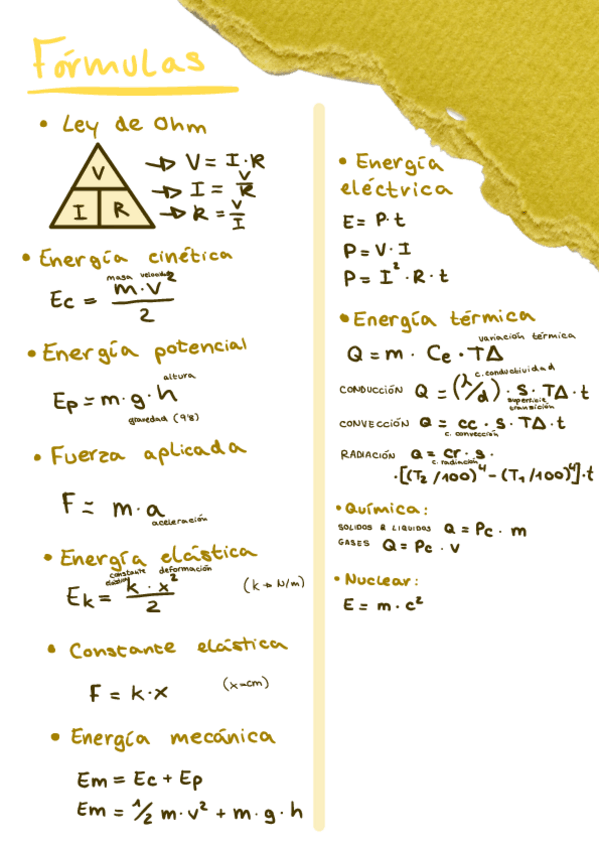 Fórmulas
• Ley de Ohm
V
I R
→ V = I · R
→ I = V/R
→ R = V/I
• Energía cinética
masa velocidad
Ec = m · v² / 2
• Energía potencial
altura
Ep = m · g · h
gravedad (9'8)
• Fuerza aplicada
F = m · a
aceleración
• Energía elástica
constante elástica deformación
Ek = k · x² / 2 (k → N/m)
• Constante elástica
F = k · x (x=cm)
• Energía mecánica
Em = Ec + Ep
Em = 1/2 m · v² + m · g · h
• Energía
eléctrica
E = P · t
P = V · I
P = I² · R · t
• Energía térmica
variación térmica
Q = m · Ce · TΔ
c. conductividad
CONDUCCIÓN Q = (λ/d) · S · TΔ · t
superficie
transición
CONVECCIÓN Q = cc · S · TΔ · t
c. convección
RADIACIÓN Q = cr · s ·
c. radiación
· [(T₂/100)⁴ - (T₁/100)⁴] · t
• Química:
SOLIDOS & LIQUIDOS Q = Pc · m
GASES Q = Pc · v
• Nuclear:
E = m · c²